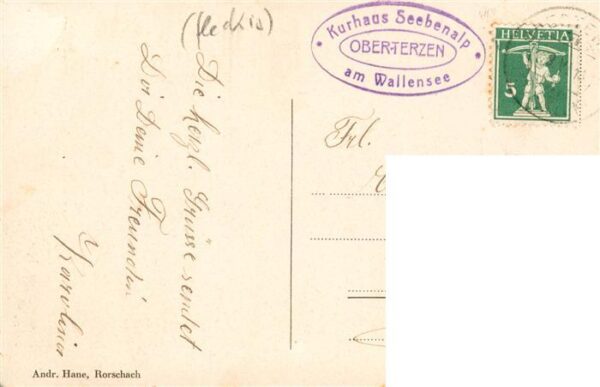 (Flecktis)
Die herzl. Grüsse sendet
Dir Deine Freundin
Karolina
Kurhaus Seebenalp
OBERTERZEN
am Wallensee
HELVETIA
5
Frl.
Andr. Hane, Rorschach